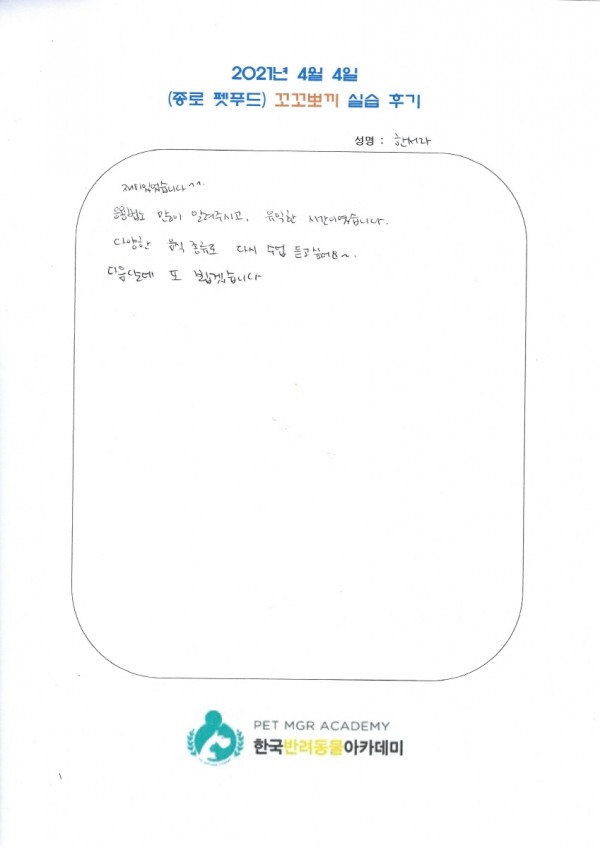 2021년 4월 4일
(종로 펫푸드) 꼬꼬뽀끼 실습 후기
성명 : 한서라
재미있었습니다^^.
응용법도 많이 알려주시고, 유익한 시간이였습니다.
다양한 음식 종류로 다시 수업 듣고싶어요~.
다음달에 또 뵙겠습니다
PET MGR ACADEMY
한국반려동물아카데미